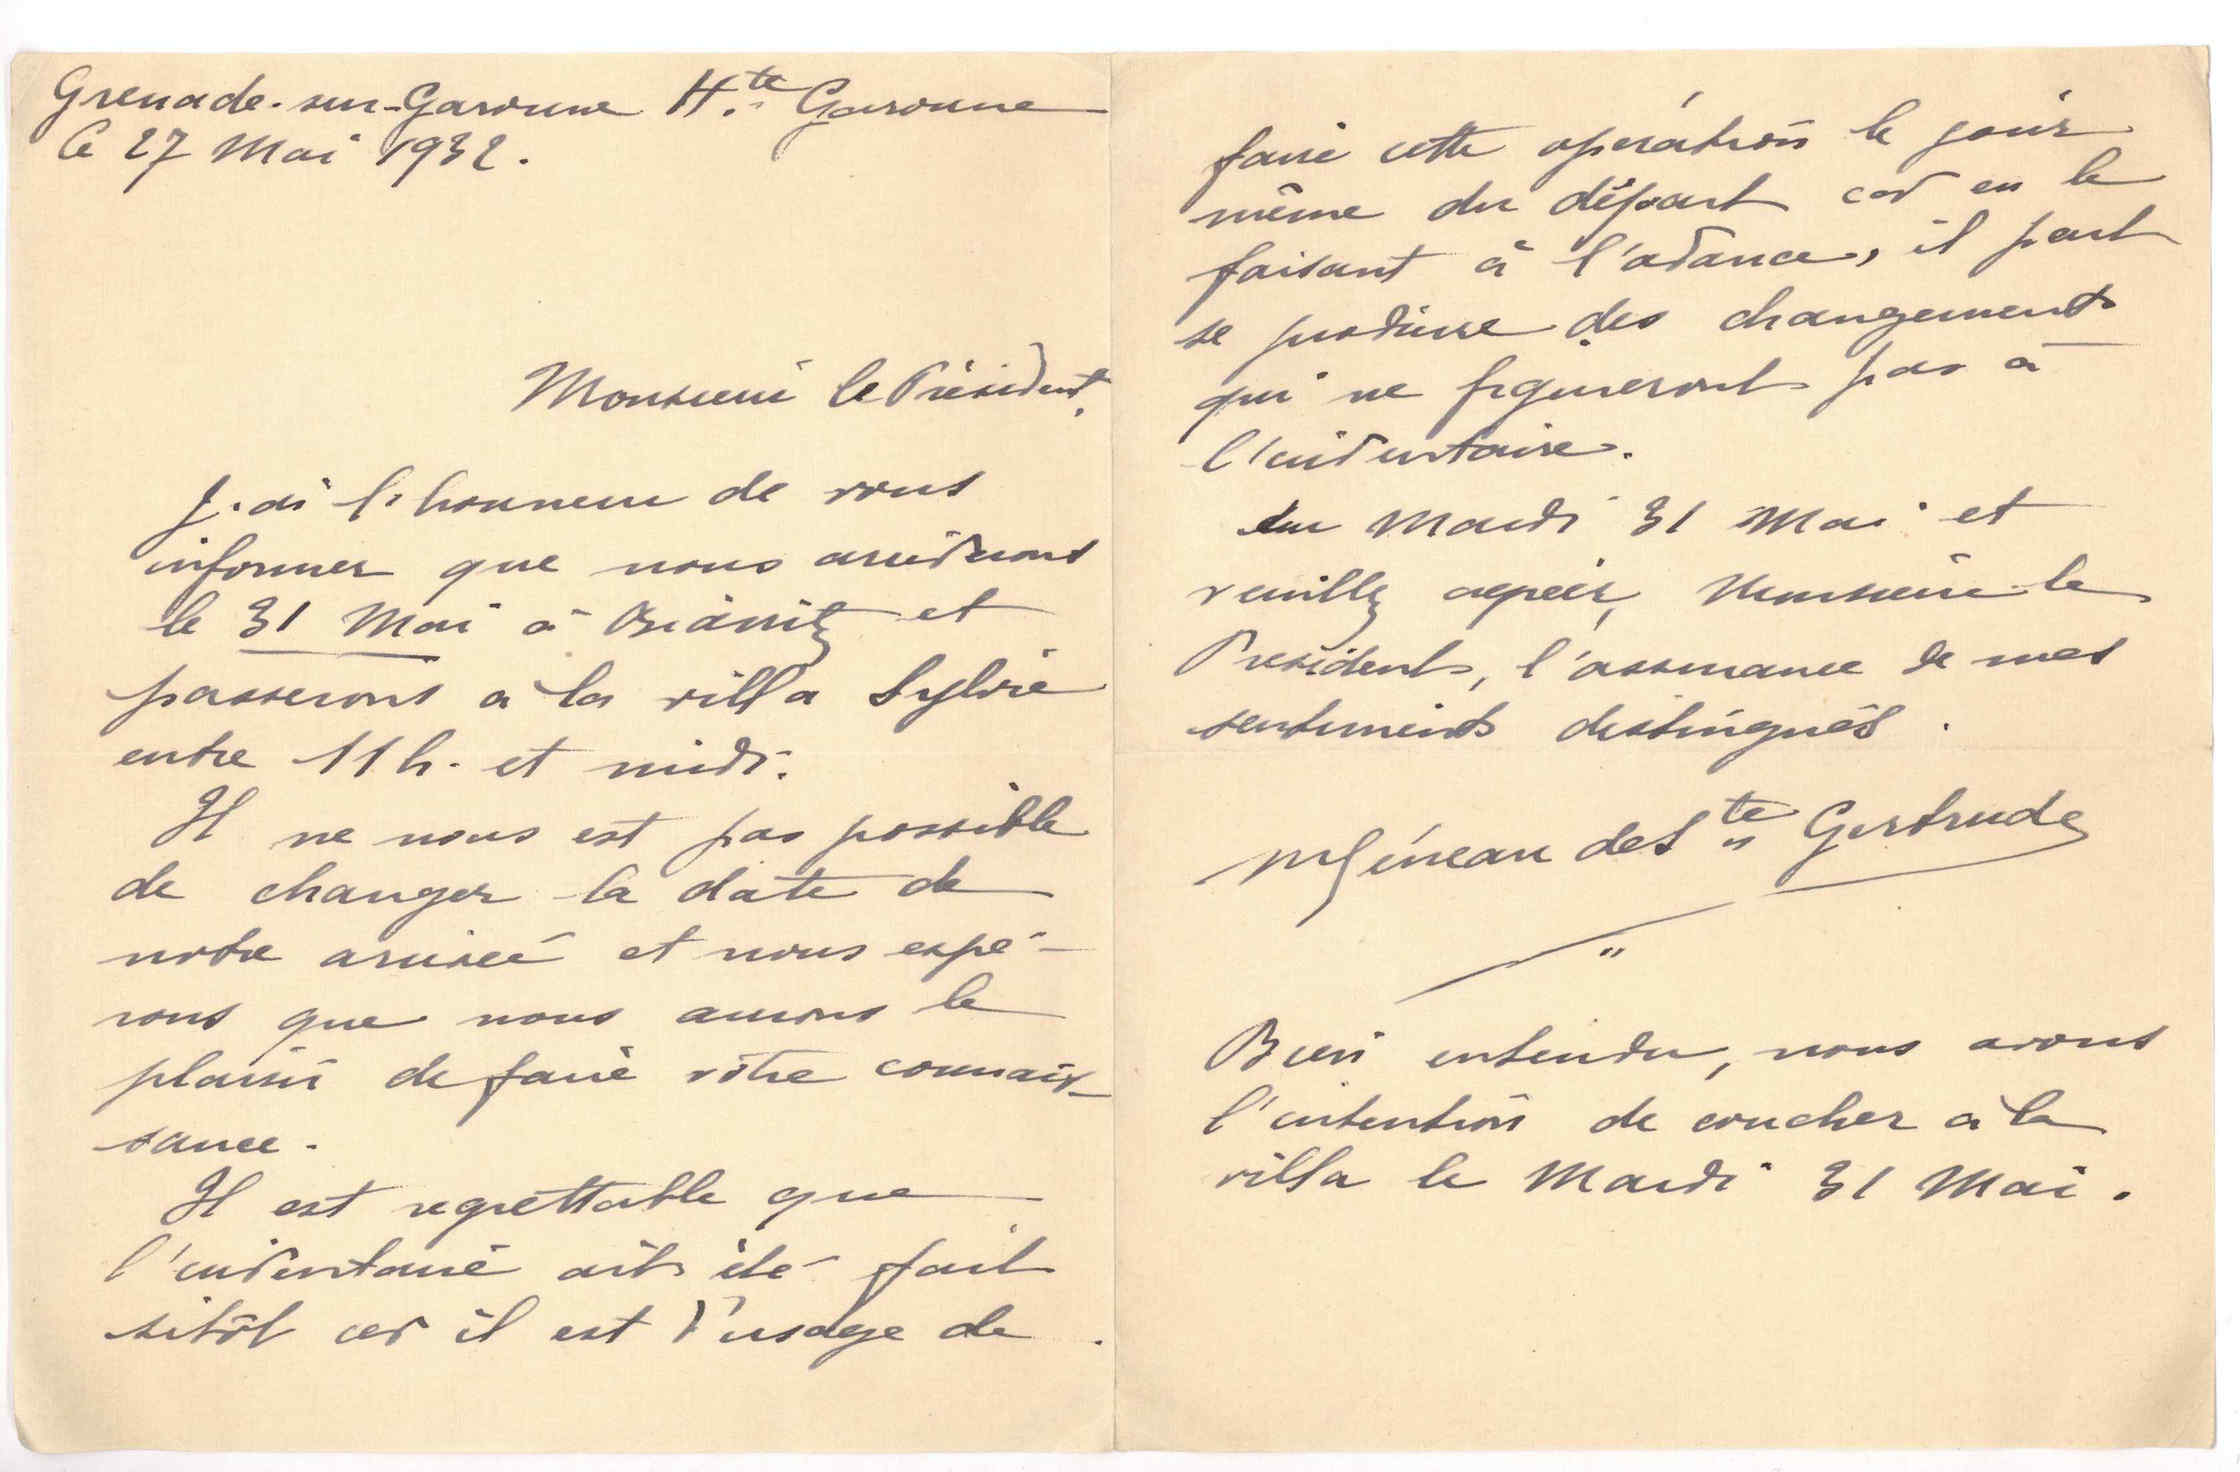 Grenade-sur-Garonne Hte Garonne
le 27 Mai 1932.
Monsieur le Président,
J'ai l'honneur de vous
informer que nous arriverons
le 31 Mai à Biarritz et
passerons à la villa Sylvie
entre 11 h. et midi.
Il ne nous est pas possible
de changer la date de
notre arrivée et nous espé-
rons que nous aurons le
plaisir de faire vôtre connais-
sance.
Il est regrettable que
l'inventaire ait été fait
sitôt car il est d'usage de
faire cette opération le jour
même du départ car en le
faisant à l'avance, il peut
se produire des changements
qui ne figureront pas à
l'inventaire.
Au Mardi 31 Mai et
veuillez agréer, Monsieur le
Président, l'assurance de mes
sentiments distingués.
de Ste Gertrude
Bien entendu, nous avons
l'intention de coucher à la
villa le Mardi 31 Mai.